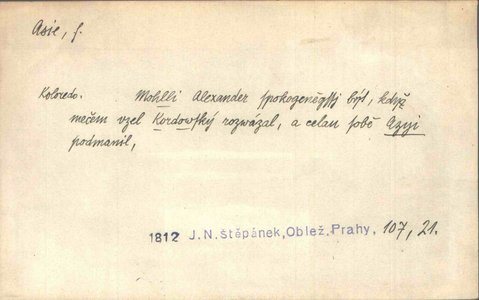 Asie, f.
Koloredo. Mohlli Alexander ſpokogeněgſſj být, když
mečem vzel Kordowſký rozwázal, a celau ſobě Azyi
podmanil,
1812 J.N.Štěpánek, Oblež. Prahy, 107, 21.